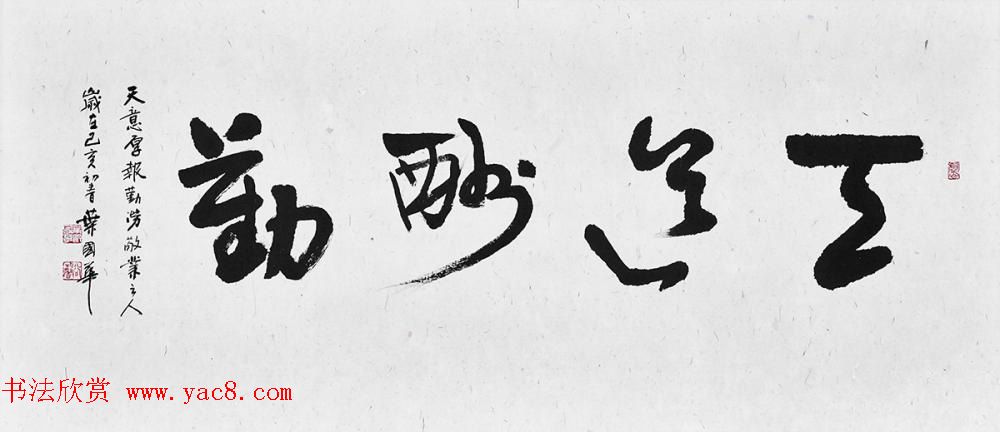 天道酬勤
天意厚報勤勞敬業之人
歲在己亥初春葉國華
书法欣赏 www.yac8.com